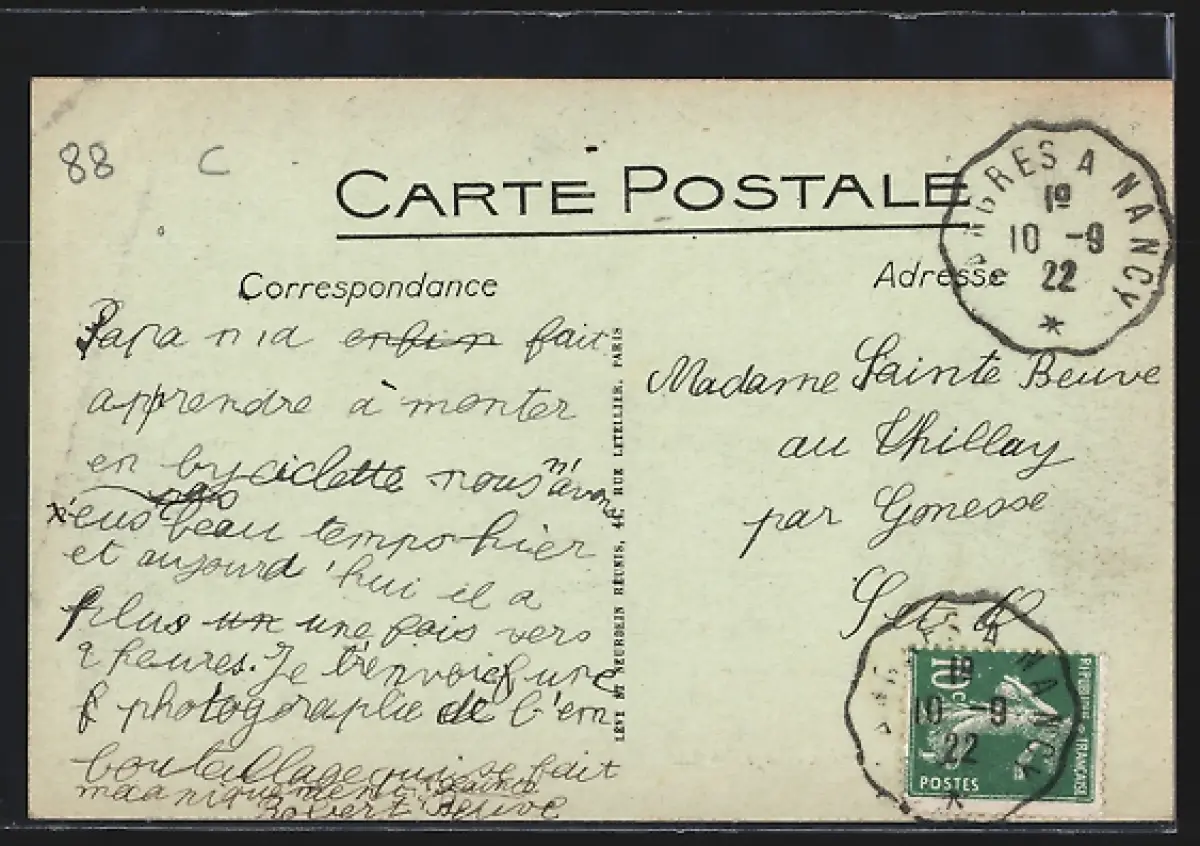 88 C
CARTE POSTALE
Correspondance
Adresse
LANGRES A NANCY
1º
10 -9
22
*
Papa n'a enfin fait
apprendre à monter
en byciclette nous n'avons
pas
x eus beau temps hier
et aujourd'hui il a
plus un une fois vers
2 heures. Je t'envoie une
photographie de l'em
bouteillage qui se fait
maaniquement
Robert Beuve
LÉVY ET NEURDEIN RÉUNIS, 44, RUE LETELLIER, PARIS
Madame Sainte Beuve
au Thillay
par Gonesse
S et O
LANGRES A NANCY
1º
10 -9
22
*
10 c
POSTES
REPUBLIQUE FRANÇAISE